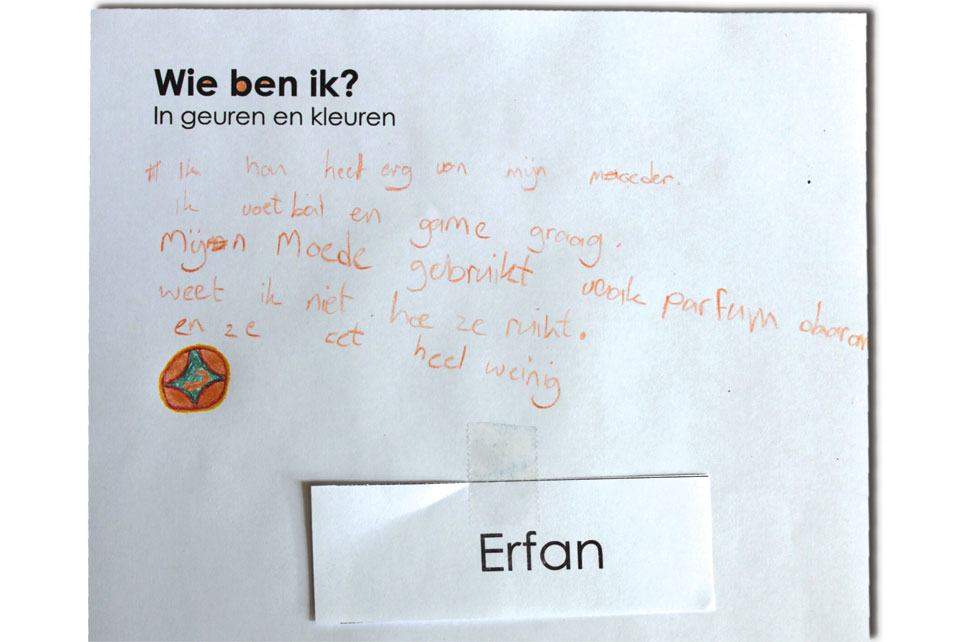 Wie ben ik?
In geuren en kleuren
# Ik han heel erg van mijn moeder.
ik voetbal en game graag.
Mijn Moede gebruikt vaak parfum daarom
weet ik niet hoe ze ruikt.
en ze eet heel weinig
Erfan